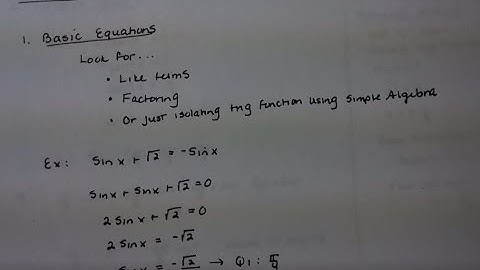 1. Basic Equations
Look for...
• Like terms
• Factoring
• Or just isolating trig function using simple Algebra
Ex: Sin x + √2 = -Sin x
Sin x + Sin x + √2 = 0
2 Sin x + √2 = 0
2 Sin x = -√2
Sin x = -√2 → Q1: π/4